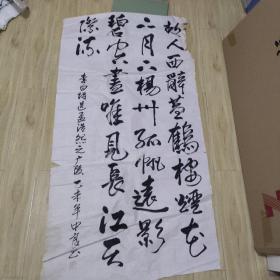 故人西辭黃鶴樓煙花
三月下楊州孤帆遠影
碧空盡唯見長江天
際流
李白詩送孟浩然之广陵